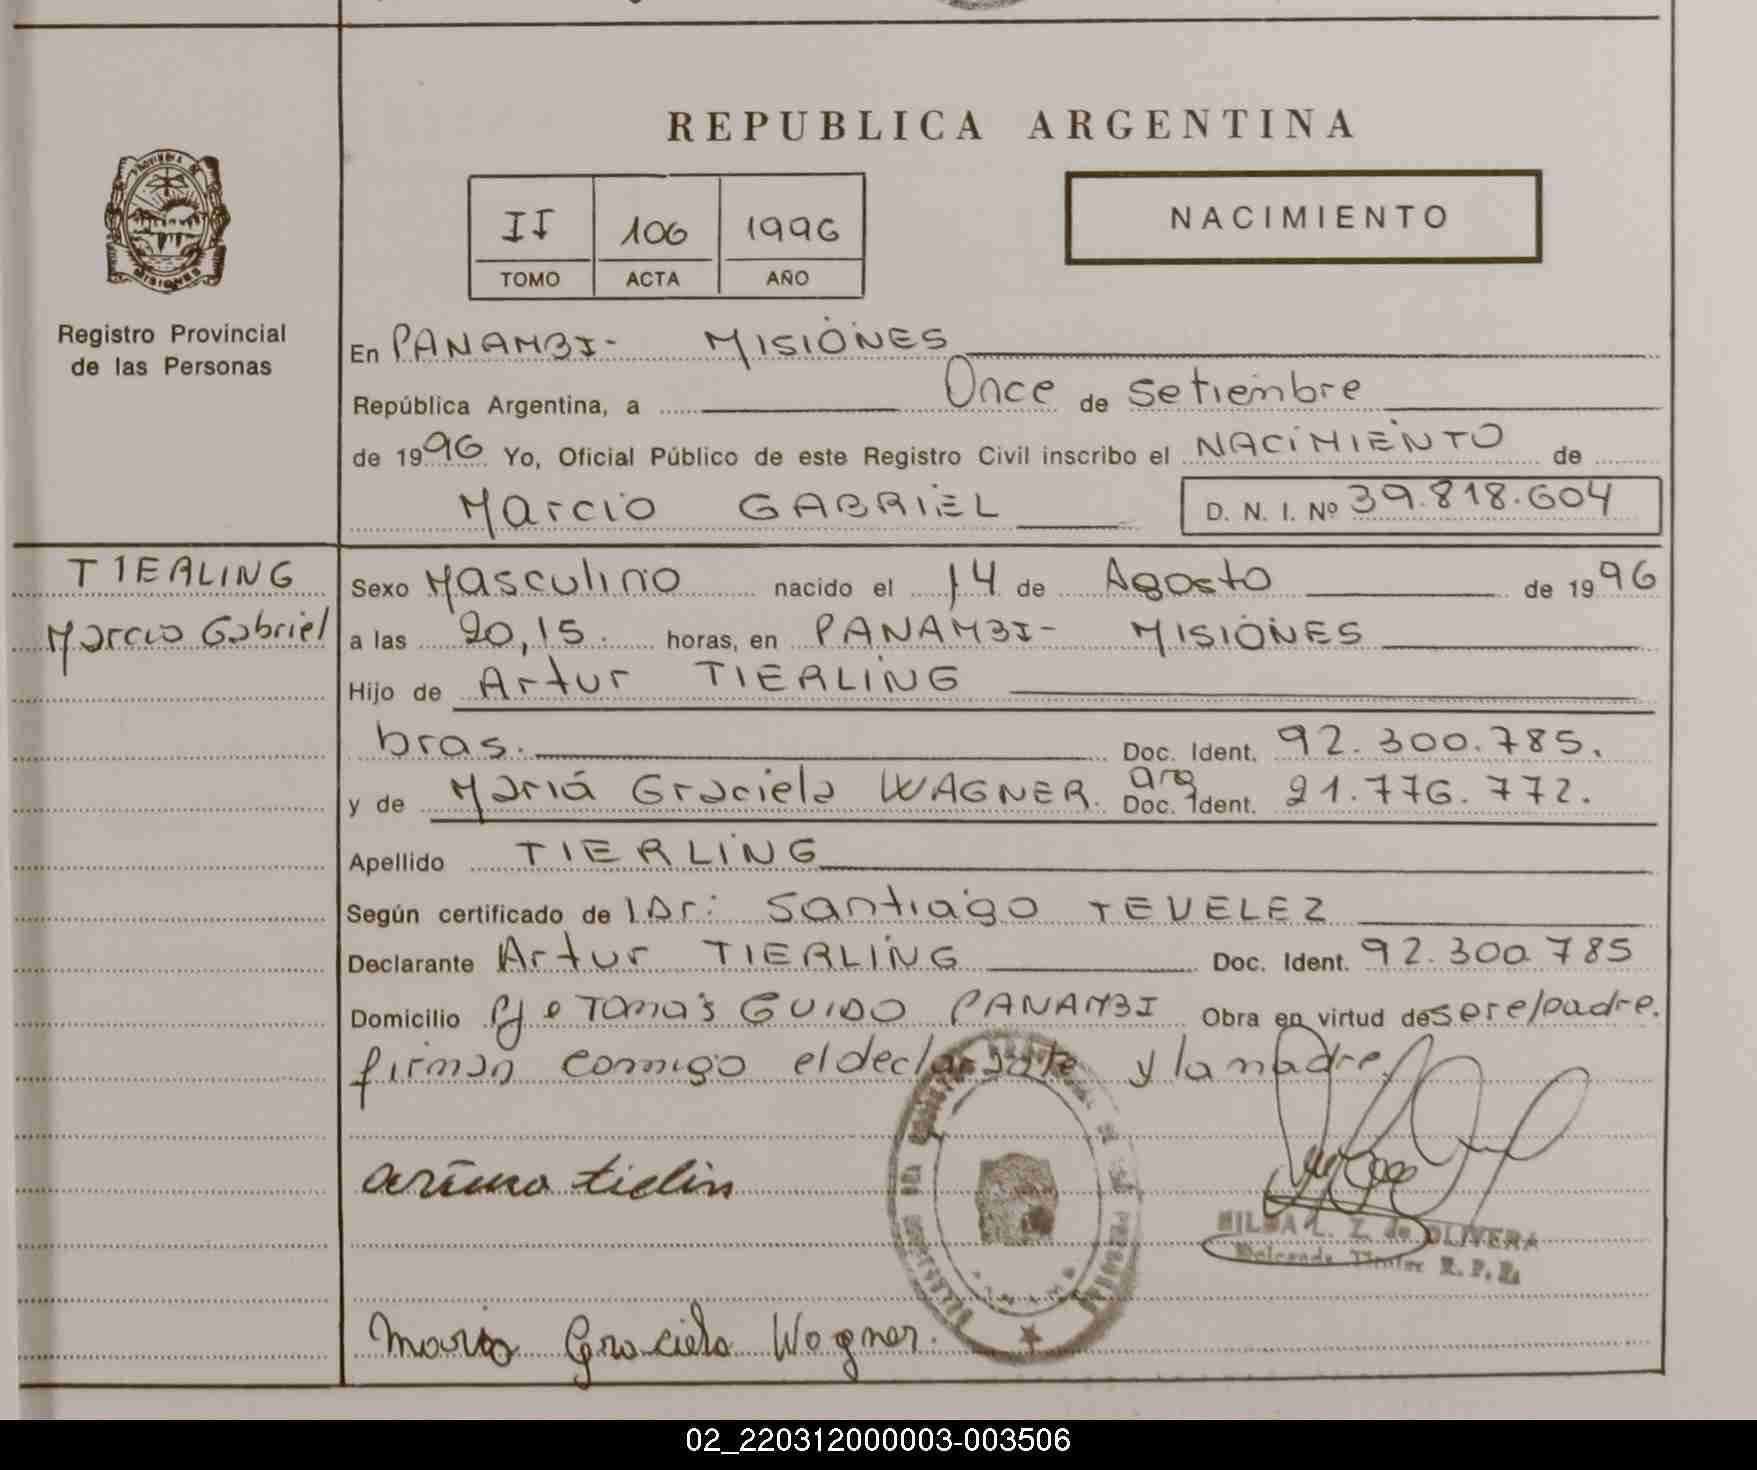 REPUBLICA ARGENTINA
II 106 1996
TOMO ACTA AÑO
NACIMIENTO
MISIONES
Registro Provincial
de las Personas
En PANAMBI- MISIONES
República Argentina, a Once de setiembre
de 1996 Yo, Oficial Público de este Registro Civil inscribo el NACIMIENTO de
Marcio GABRIEL D. N. I. Nº 39.818.604
TIERLING
Marcio Gabriel
Sexo Masculino nacido el 14 de Agosto de 1996
a las 20,15. horas, en PANAMBI- MISIONES
Hijo de Artur TIERLING
bras. Doc. Ident. 92.300.785.
y de Mariá Graciela WAGNER. arg Doc. Ident. 21.776.772.
Apellido TIERLING
Según certificado de Dr: Santiago TEVELEZ
Declarante Artur TIERLING Doc. Ident. 92.300.785
Domicilio Pje Tomás GUIDO PANAMBI Obra en virtud de ser el padre.
firman conmigo el declarante y la madre.
HILDA L. Z. de OLIVERA
Titular R. P. P.
Maria Graciela Wagner.
02_220312000003-003506